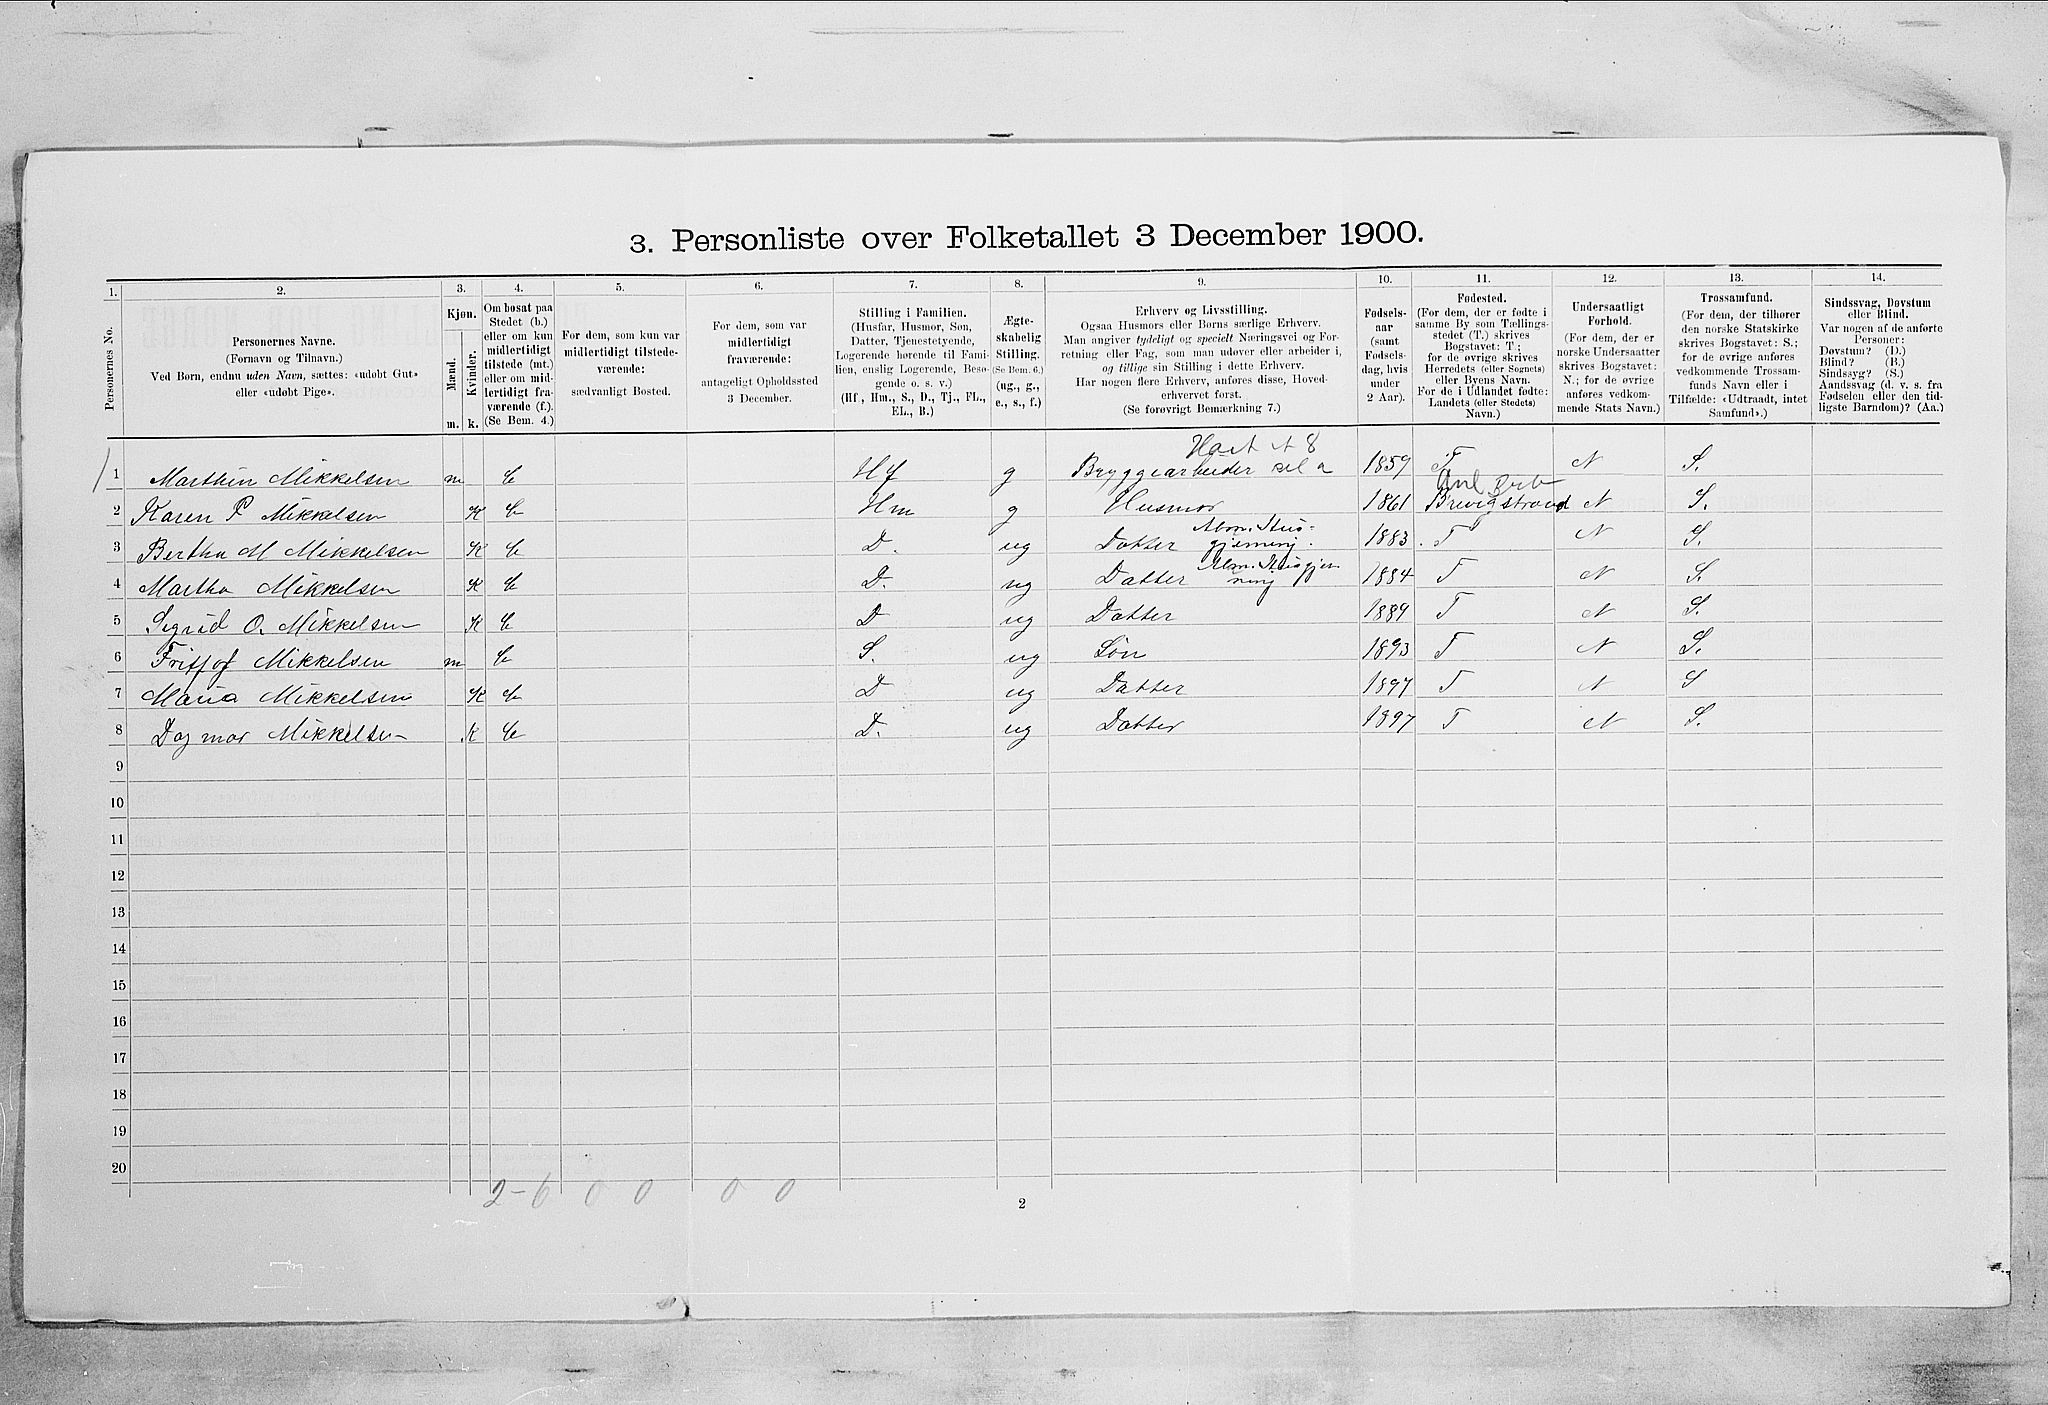 3. Personliste over Folketallet 3 December 1900.
1. 2. 3. 4. 5. 6. 7. 8. 9. 10. 11. 12. 13. 14.
Personernes No.
Personernes Navne.
(Fornavn og Tilnavn.)
Ved Børn, endnu uden Navn, sættes: «udøbt Gut»
eller «udøbt Pige».
Kjøn.
Mænd.
Kvinder.
m. k.
Om bosat paa
Stedet (b.)
eller om kun
midlertidigt
tilstede (mt.)
eller om mid-
lertidigt fra-
værende (f.).
(Se Bem. 4.)
For dem, som kun var
midlertidigt tilstede-
værende:
sædvanligt Bosted.
For dem, som var
midlertidigt
fraværende:
antageligt Opholdssted
3 December.
Stilling i Familien.
(Husfar, Husmor, Søn,
Datter, Tjenestetyende,
Logerende hørende til Fami-
lien, enslig Logerende, Besø-
gende o. s. v.)
(Hf., Hm., S., D., Tj., FL.,
EL., B.)
Ægte-
skabelig
Stilling.
(Se Bem. 6.)
(ug., g.,
e., s., f.)
Erhverv og Livsstilling.
Ogsaa Husmors eller Børns særlige Erhverv.
Man angiver tydeligt og specielt Næringsvei og For-
retning eller Fag, som man udøver eller arbeider i,
og tillige sin Stilling i dette Erhverv.
Har nogen flere Erhverv, anføres disse, Hoved-
erhvervet først.
(Se forøvrigt Bemærkning 7.)
Fødsels-
aar
(samt
Fødsels-
dag, hvis
under
2 Aar).
Fødested.
(For dem, der er fødte i
samme By som Tællings-
stedet (T.) skrives
Bogstavet: T.;
for de øvrige skrives
Herredets (eller Sognets)
eller Byens Navn.
For de i Udlandet fødte:
Landets (eller Stedets)
Navn.)
Undersaatligt
Forhold.
(For dem, der er
norske Undersaatter
skrives Bogstavet:
N.; for de øvrige
anføres vedkom-
mende Stats Navn.)
Trossamfund.
(For dem, der tilhører
den norske Statskirke
skrives Bogstavet: S.;
for de øvrige anføres
vedkommende Trossam-
funds Navn eller i
Tilfælde: «Udtraadt, intet
Samfund».)
Sindssvag, Døvstum
eller Blind.
Var nogen af de anførte
Personer:
Døvstum? (D.)
Blind? (B.)
Sindssyg? (S.)
Aandssvag (d. v. s. fra
Fødselen eller den tid-
ligste Barndom)? (Aa.)
1 Marthin Mikkelsen m b Hf g Bryggearbeider 1859 T N S.
2 Karen P Mikkelsen K b Hm g Husmor 1861 Brevigstrand N S.
3 Bertha M Mikkelsen K b D. ug Datter Alm. Hus=
gjerning. 1883 T N S.
4 Martha Mikkelsen K b D. ug Datter Alm. Husgjer
ning 1884 T N S.
5 Sigrid O. Mikkelsen K b D ug Datter 1889 T N S.
6 Fritjof Mikkelsen m b S. ug Søn 1893 T N S.
7 Maria Mikkelsen K b D ug Datter 1897 T N S
8 Dagmar Mikkelsen K b D. ug Datter 1897 T N S.
9
10
11
12
13
14
15
16
17
18
19
20
2-6 0 0 0 0
2